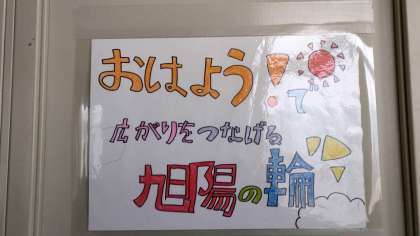 おはよう!で
広がりをつなげる
旭陽の輪